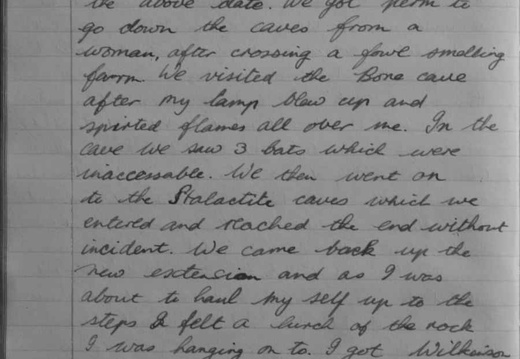 the above date. We got perm to
go down the caves from a
woman, after crossing a fowl smelling
farm. We visited the Bone cave
after my lamp blew up and
spirted flames all over me. In the
cave we saw 3 bats which were
inaccessable. We then went on
to the Stalactite caves which we
entered and reached the end without
incident. We came back up the
new extension and as I was
about to haul my self up to the
steps I felt a lurch of the rock
I was hanging on to. I got Wilkinson